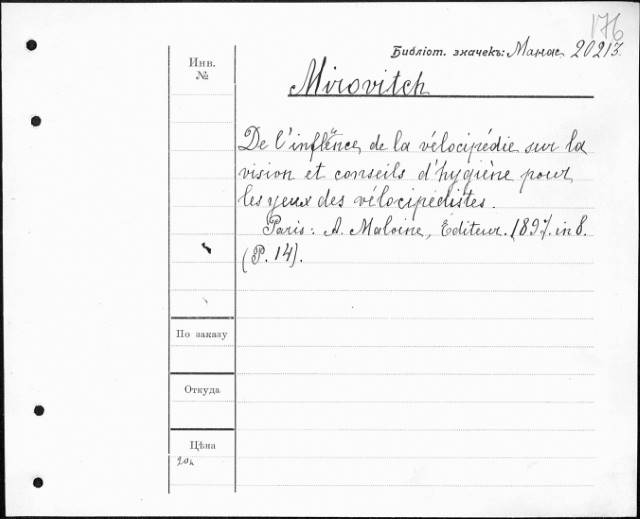 176
Библіот. значекъ: 20213.
Инв.
№
Mirovitch
De l'influence de la vélocipédie sur la
vision et conseils d'hygiène pour
les yeux des vélocipédistes.
Paris: A. Maloine, Editeur. 1897. in 8.
(P. 14).
По заказу
Откуда
Цѣна
20к